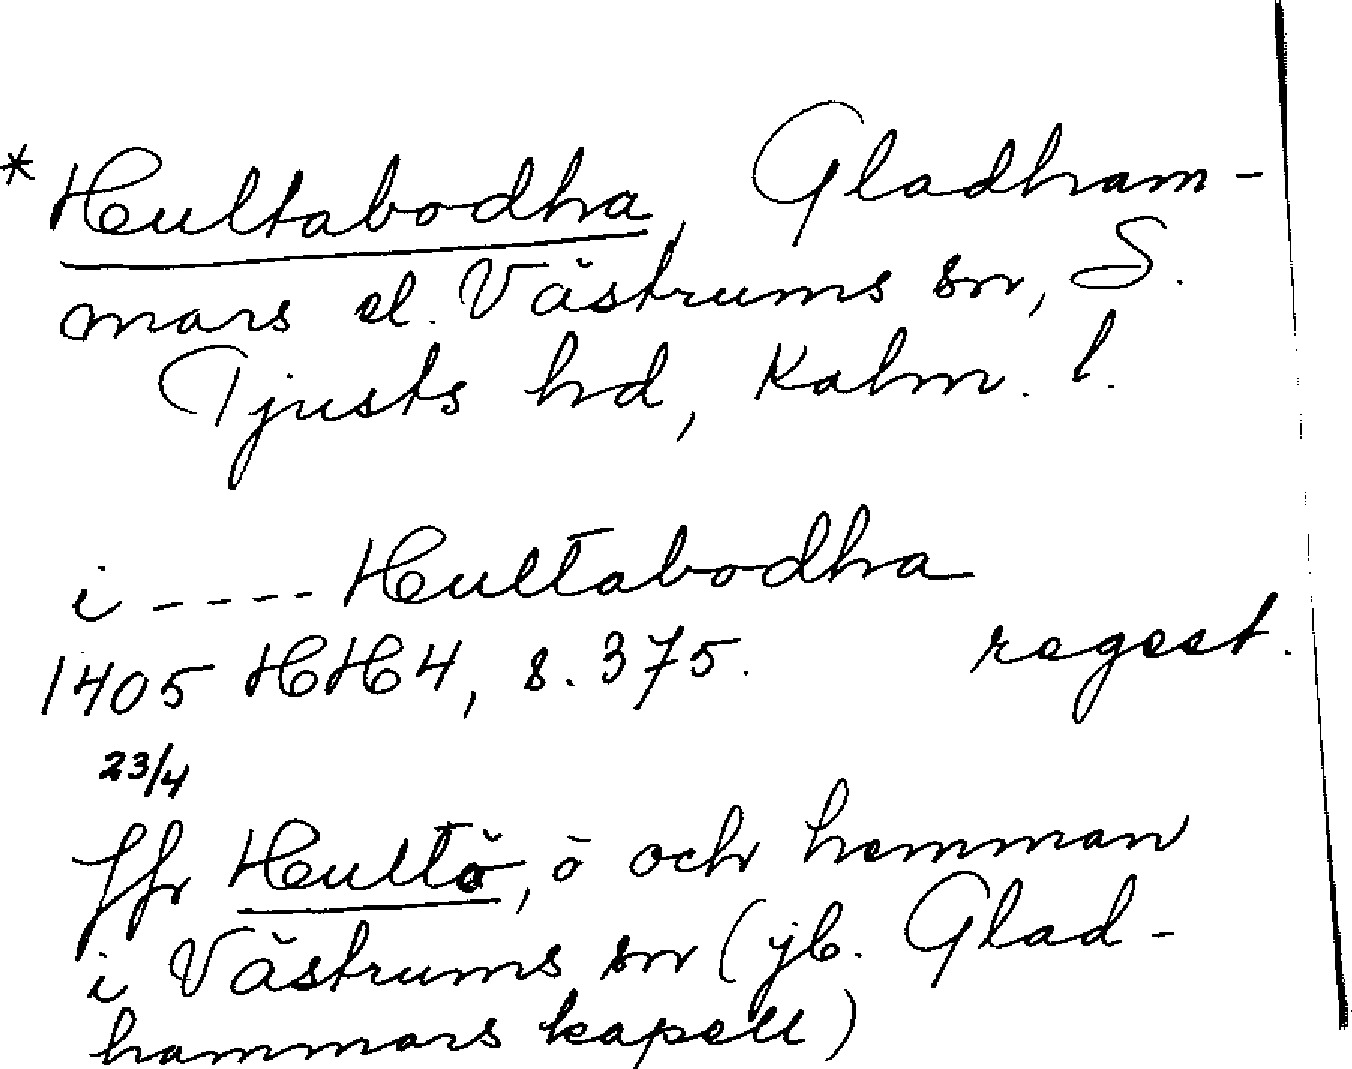 * Hultabodha, Gladham-
mars el. Västrums sn, S.
Tjusts hd, Kalm. l.
i ---- Hultabodha
1405 HH4, s. 375. regest.
23/4
Jfr Hultö, ö och hemman
i Västrums sn (jb. Glad-
hammars kapell)